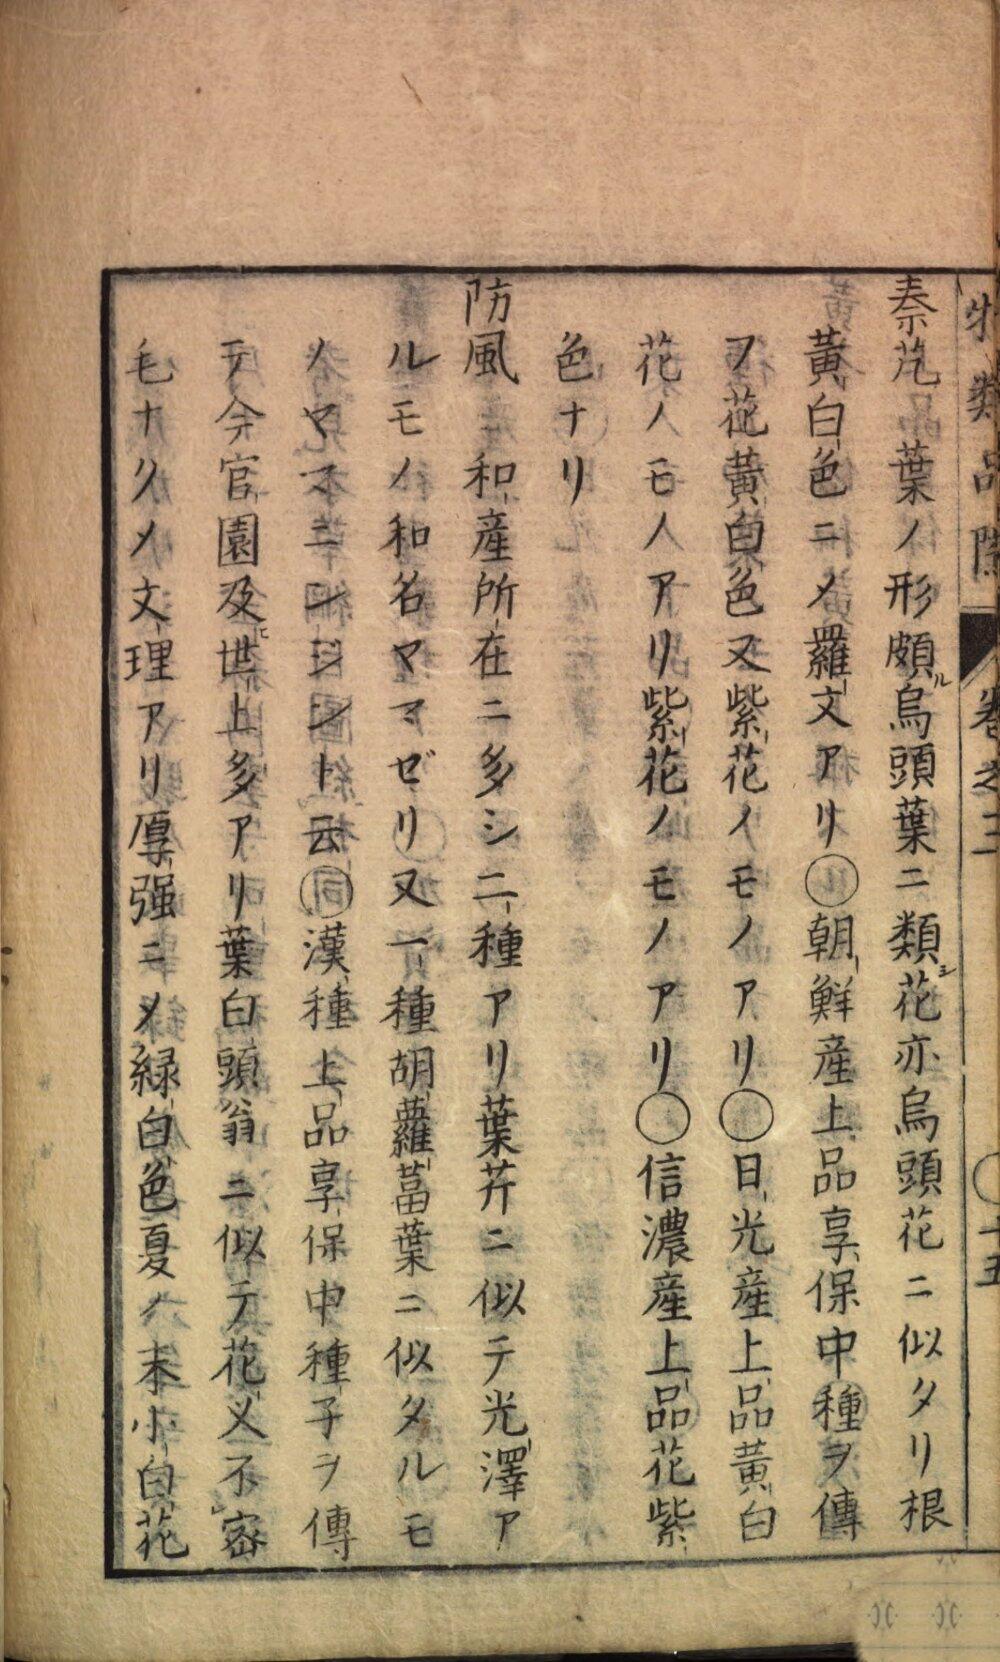 物類品隲 卷之三 ○十五
秦艽 葉ノ形頗ル烏頭葉ニ類ス花亦烏頭花ニ似タリ根
黄白色ニメ羅文アリ○朝鮮産上品享保中種ヲ傳
フ花黄白色又紫花ノモノアリ○日光産上品黄白
花ノモノアリ紫花ノモノアリ○信濃産上品花紫
色ナリ
防風 和産所在ニ多シ二種アリ葉芹ニ似テ光澤ア
ルモノ和名ヤマゼリ又一種胡蘿蔔葉ニ似タルモ
ノヤマニンジント云○漢種上品享保中種子ヲ傳
テ今官園及ヒ世上多アリ葉白頭翁ニ似テ花乂不密
毛ナクメ文理アリ厚强ニメ緑白色夏ノ末小白花